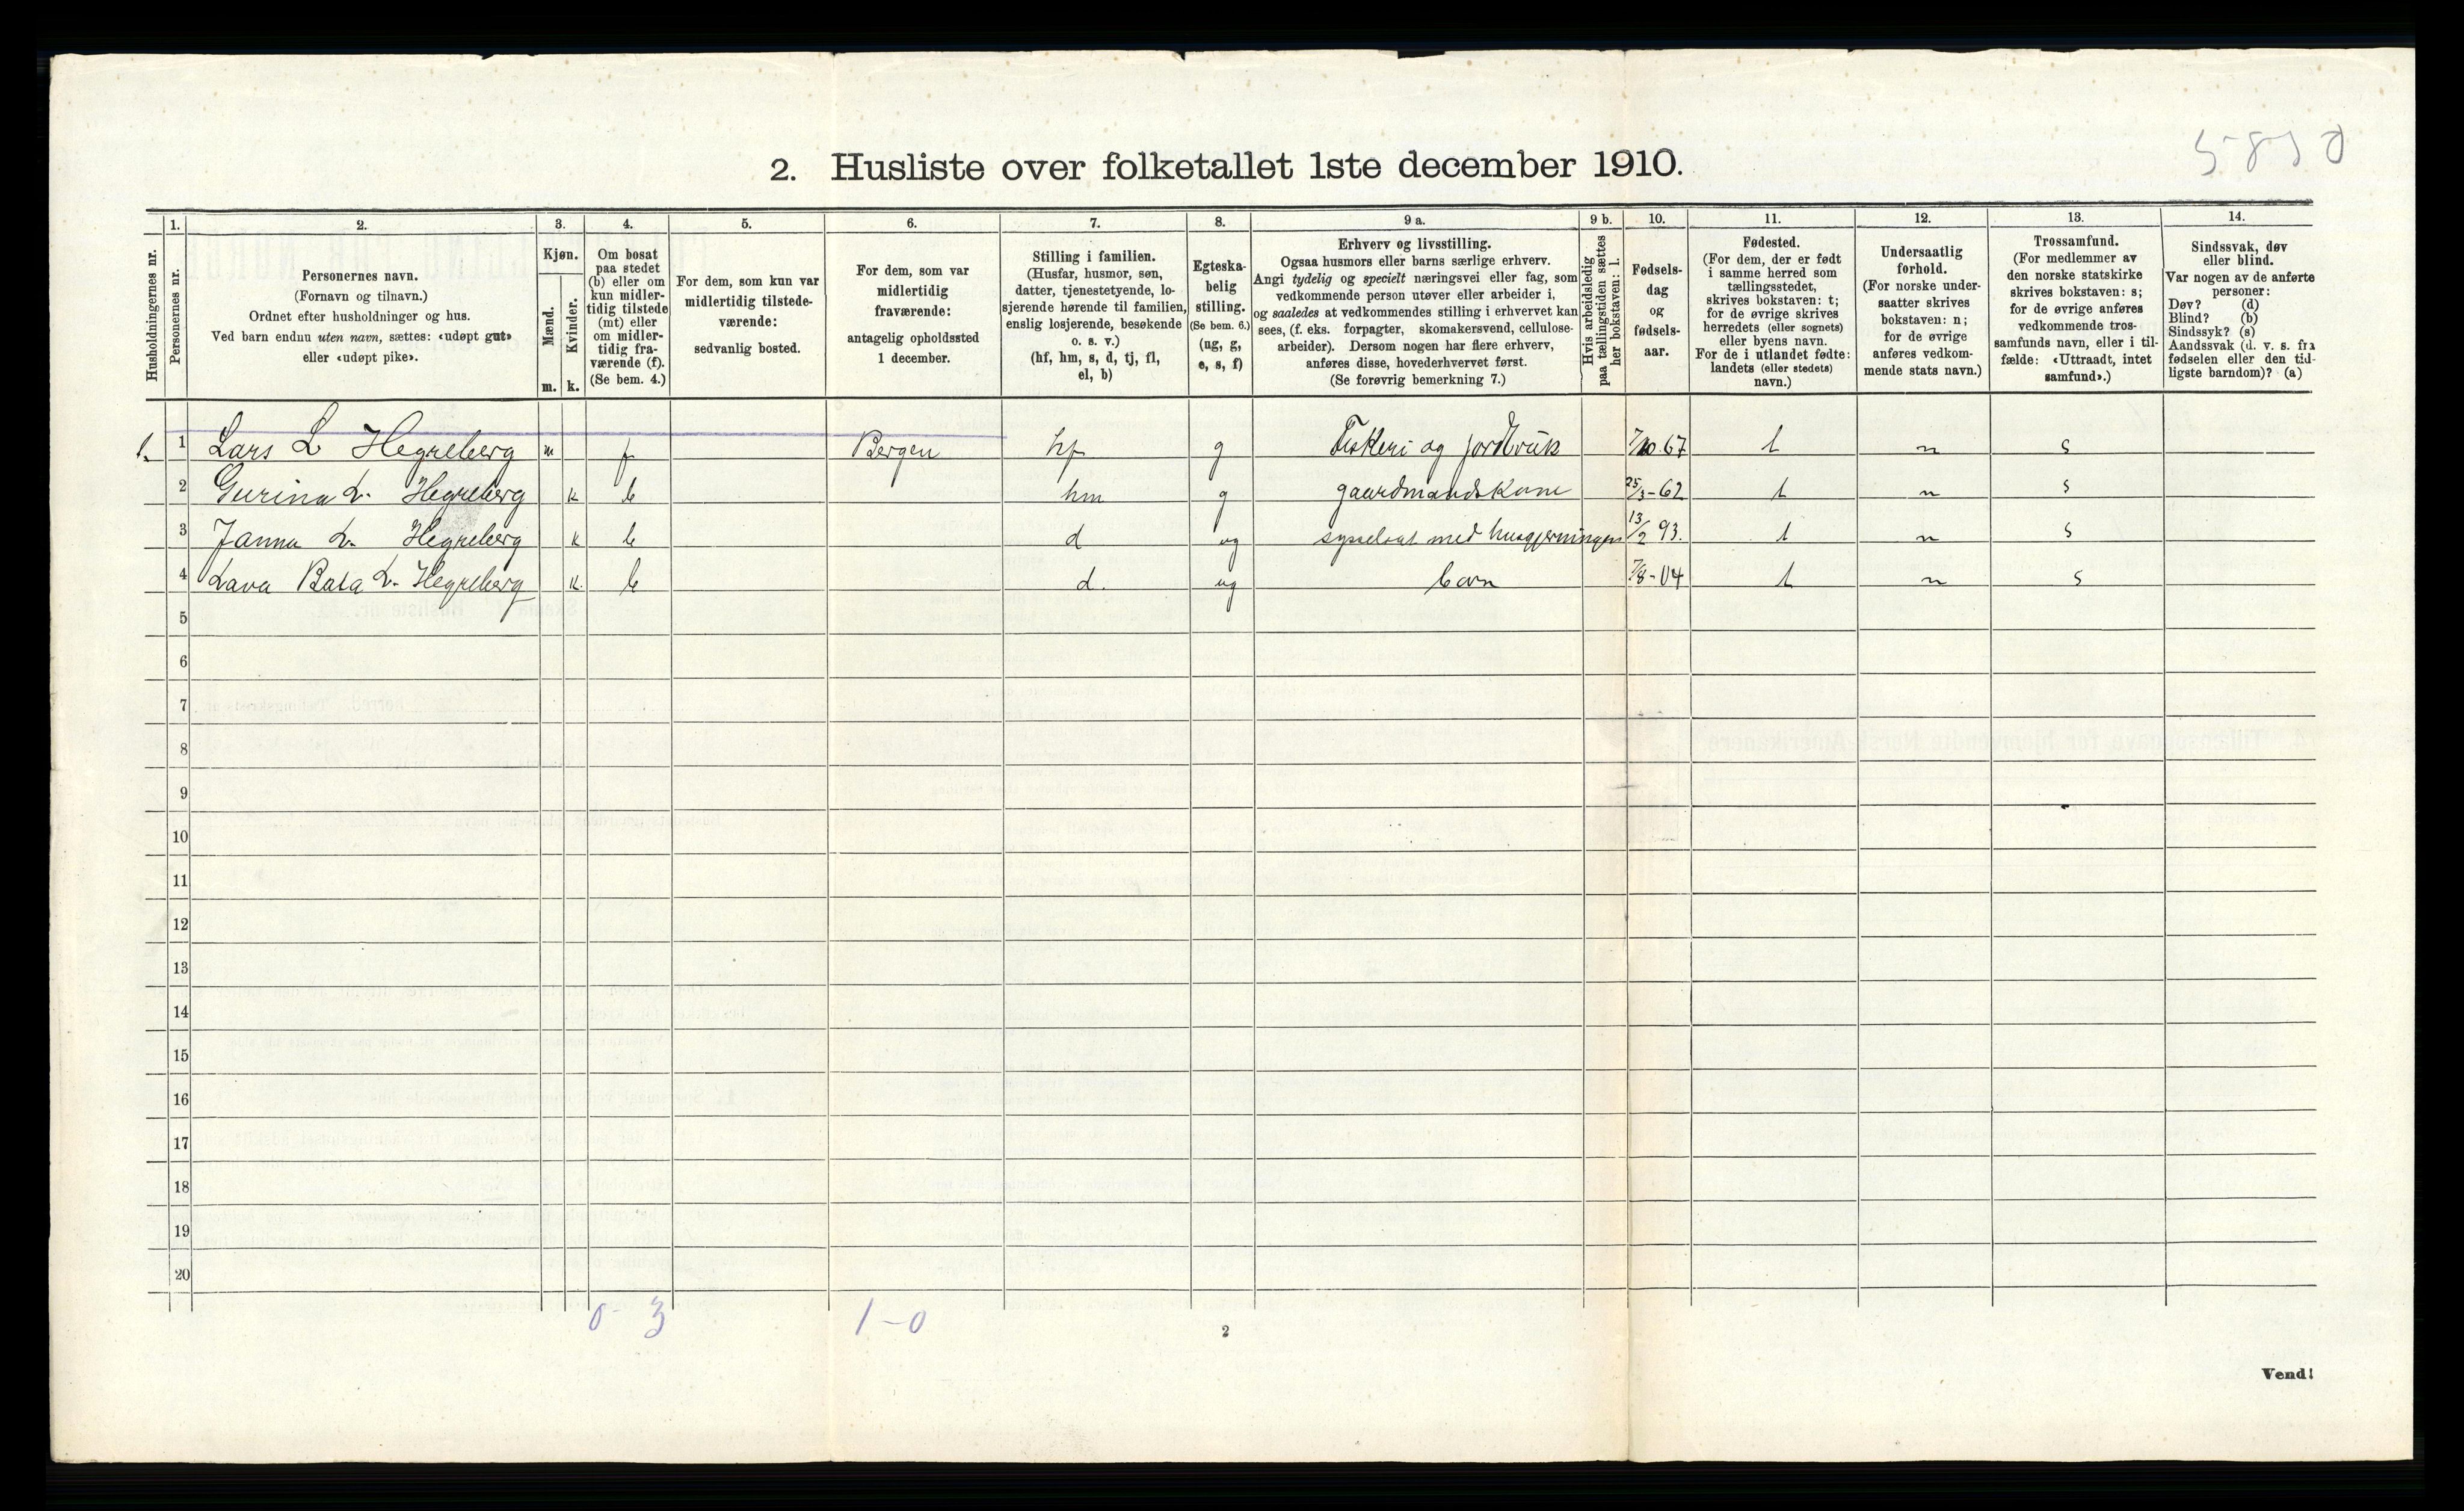 5830
2. Husliste over folketallet 1ste december 1910.
Husholdningernes nr.
1. Personernes nr.
2. Personernes navn.
(Fornavn og tilnavn.)
Ordnet efter husholdninger og hus.
Ved barn endnu uten navn, sættes: «udøpt gut»
eller «udøpt pike».
3. Kjøn.
Mænd. Kvinder.
m. k.
4. Om bosat
paa stedet
(b) eller om
kun midler-
tidig tilstede
(mt) eller
om midler-
tidig fra-
værende (f).
(Se bem. 4.)
5. For dem, som kun var
midlertidig tilstede-
værende:
sedvanlig bosted.
6. For dem, som var
midlertidig
fraværende:
antagelig opholdssted
1 december.
7. Stilling i familien.
(Husfar, husmor, søn,
datter, tjenestetyende, lo-
sjerende hørende til familien,
enslig losjerende, besøkende
o. s. v.)
(hf, hm, s, d, tj, fl,
el, b)
8. Egteska-
belig
stilling.
(Se bem. 6.)
(ug, g,
e, s, f)
9 a. Erhverv og livsstilling.
Ogsaa husmors eller barns særlige erhverv.
Angi tydelig og specielt næringsvei eller fag, som
vedkommende person utøver eller arbeider i,
og saaledes at vedkommendes stilling i erhvervet kan
sees, (f. eks. forpagter, skomakersvend, cellulose-
arbeider). Dersom nogen har flere erhverv,
anføres disse, hovederhvervet først.
(Se forøvrig bemerkning 7.)
9 b. Hvis arbeidsledig
paa tællingstiden sættes
her bokstaven: l.
10. Fødsels-
dag
og
fødsels-
aar.
11. Fødested.
(For dem, der er født
i samme herred som
tællingsstedet,
skrives bokstaven: t;
for de øvrige skrives
herredets (eller sognets)
eller byens navn.
For de i utlandet fødte:
landets (eller stedets)
navn.)
12. Undersaatlig
forhold.
(For norske under-
saatter skrives
bokstaven: n;
for de øvrige
anføres vedkom-
mende stats navn.)
13. Trossamfund.
(For medlemmer av
den norske statskirke
skrives bokstaven: s;
for de øvrige anføres
vedkommende tros-
samfunds navn, eller i til-
fælde: «Uttraadt, intet
samfund».)
14. Sindssvak, døv
eller blind.
Var nogen av de anførte
personer:
Døv? (d)
Blind? (b)
Sindssyk? (s)
Aandssvak (d. v. s. fra
fødselen eller den tid-
ligste barndom)? (a)
1. 1 Lars L Hegreberg m f Bergen hf g Fiskeri og jordbruk 7/10 67 t n s
2 Gurina L. Hegreberg k b hm g gaardmandskone 25/3-62 t n s
3 Janna L. Hegreberg k b d ug sysselsat med husgjerningen 13/2 93. t n s
4 Lava Bata L. Hegreberg k. b d. ug barn 7/8-04 t n s
5
6
7
8
9
10
11
12
13
14
15
16
17
18
19
20
0-3 1-0
2
Vend!